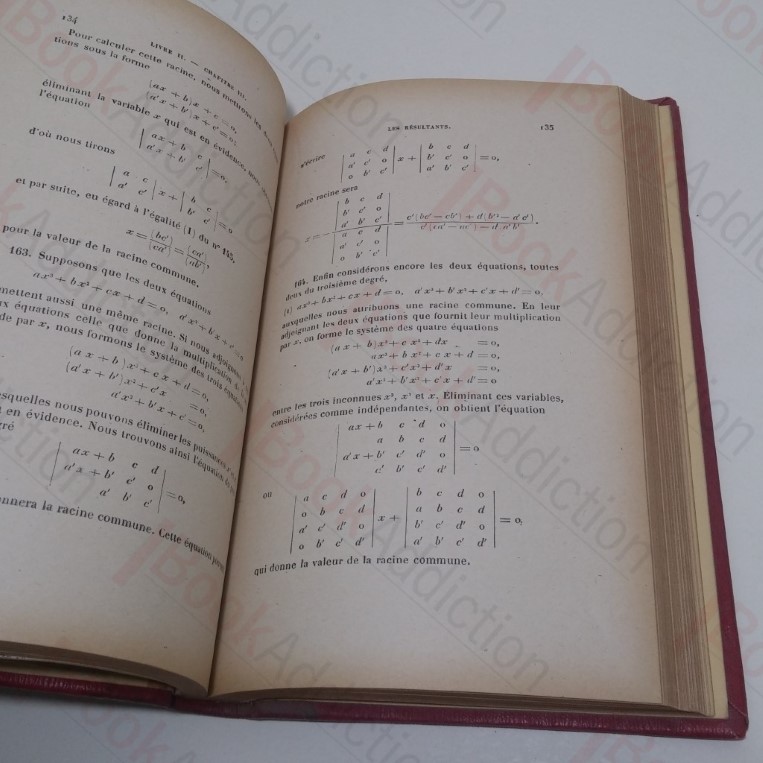 134
LIVRE II. — CHAPITRE III.
Pour calculer cette racine, nous mettrons les deux
tions sous la forme
(ax + b)x + c = 0,
(a'x + b')x + c' = 0;
éliminant la variable x qui est en évidence, nous
l'équation
| ax + b c |
| a'x + b' c' | = 0,
d'où nous tirons
| a c |
| a' c' | x + | b c |
| b' c' | = 0
et par suite, en égard à l'égalité (1) du n° 155,
x = (bc')/(ca') = (ca')/(ab'),
pour la valeur de la racine commune.
163. Supposons que les deux équations
ax³ + bx² + cx + d = 0, a'x² + b'x + c' = 0
mettent aussi une même racine. Si nous adjoignons
x équations celle que donne la multiplication de la
de par x, nous formons le système des trois équations
(ax + b)x² + cx + d = 0,
(a'x + b')x² + c'x = 0,
a'x² + b'x + c' = 0.
esquelles nous pouvons éliminer les puissances
t en évidence. Nous trouvons ainsi l'équation du
gré
| ax + b c d |
| a'x + b' c' 0 | = 0,
| a' b' c' |
onnera la racine commune. Cette équation
LES RÉSULTANTS. 135
s'écrire
| a c d |
| a' c' 0 | x + | b c d |
| b' c' 0 | = 0,
| 0 b' c' | | a' b' c' |
notre racine sera
| b c d |
| b' c' 0 |
| a' b' c' |
x = − = c'(bc' − cb') + d(b'² − a'c')
| a c d |
| a' c' 0 |
| 0 b' c' |
164. Enfin considérons encore les deux équations, toutes
deux du troisième degré,
(1) ax³ + bx² + cx + d = 0, a'x³ + b'x² + c'x + d' = 0,
auxquelles nous attribuons une racine commune. En leur
adjoignant les deux équations que fournit leur multiplication
par x, on forme le système des quatre équations
(ax + b)x³ + cx² + dx = 0,
ax³ + bx² + cx + d = 0,
(a'x + b')x³ + c'x² + d'x = 0
a'x³ + b'x² + c'x + d' = 0
entre les trois inconnues x³, x² et x. Éliminant ces variables,
considérées comme indépendantes, on obtient l'équation
| ax + b c d 0 |
| a b c d |
| a'x + b' c' d' 0 | = 0
| a' b' c' d' |
ou
| a c d 0 | | b c d 0 |
| 0 b c d | x + | a b c d | = 0,
| a' c' d' 0 | | b' c' d' 0 |
| 0 b' c' d' | | a' b' c' d' |
qui donne la valeur de la racine commune.